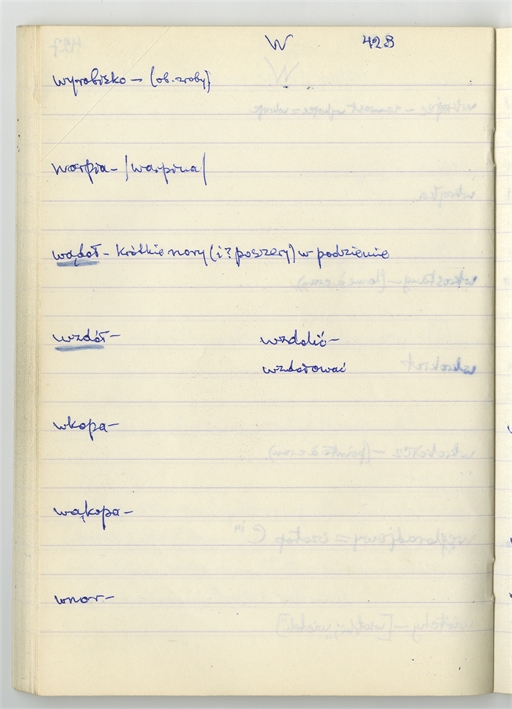 W 428
wyrobisko – (ob. zroby)
warpia – /warpina/
wądół – krótkie nory (i? poszery) w podziemie
wzdół – wzdolić –
wzdołować
wkopa –
wąkopa –
wnor –